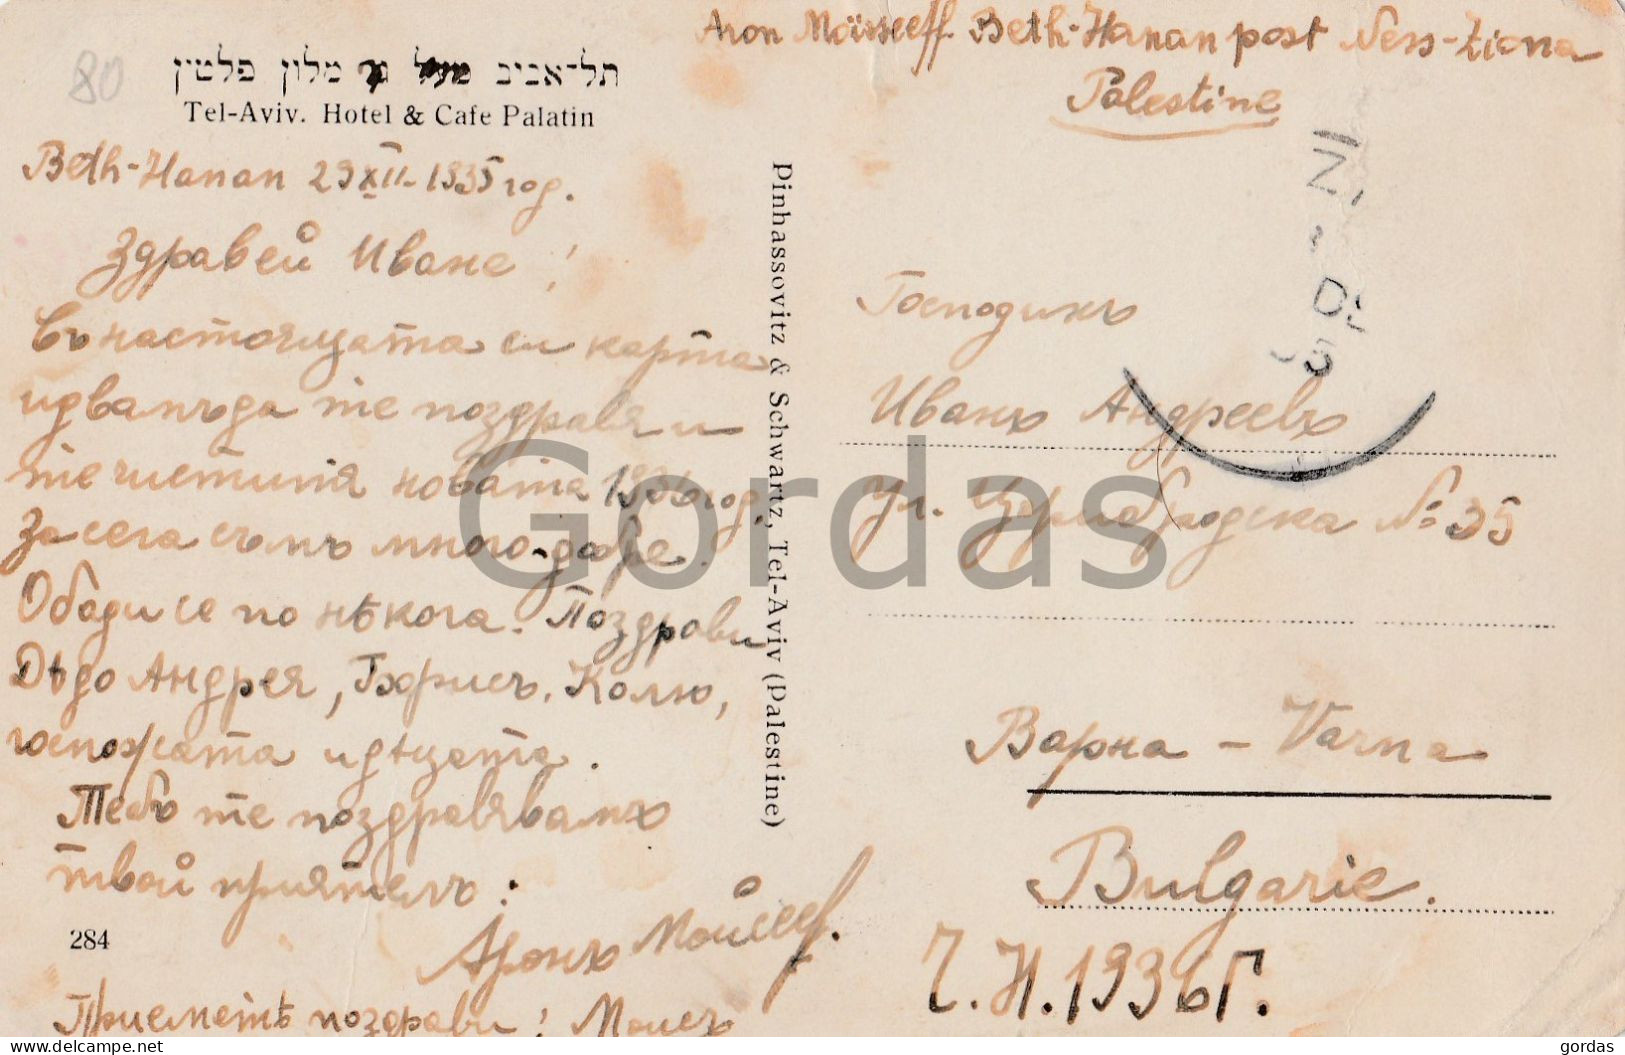 80
תל-אביב מלון פלטין
Tel-Aviv. Hotel & Cafe Palatin
Beth-Hanan 29 XII-1935 год.
Здравей Иване!
Въ настоящата си карта
идвамъ да те поздравя и
те честитя новата 1936 год.
За сега съмъ много добре.
Обади се по нѣкога. Поздрави
Дѣдо Андрея, Борисъ, Колю,
госпожата и дѣцата.
Тебъ те поздравявамъ
твой приятелъ:
Аронъ Мойсеев.
284
Приемете поздрави!
Pinhassovitz & Schwartz, Tel-Aviv (Palestine)
Aron Moïsseeff Beth-Hanan post Ness-Ziona
Palestine
Господинъ
Иванъ Андреевъ
Ул. № 35
Варна – Varna
Bulgarie.
Ч.Н.1936г.
Gordas
delcampe.net
gordas